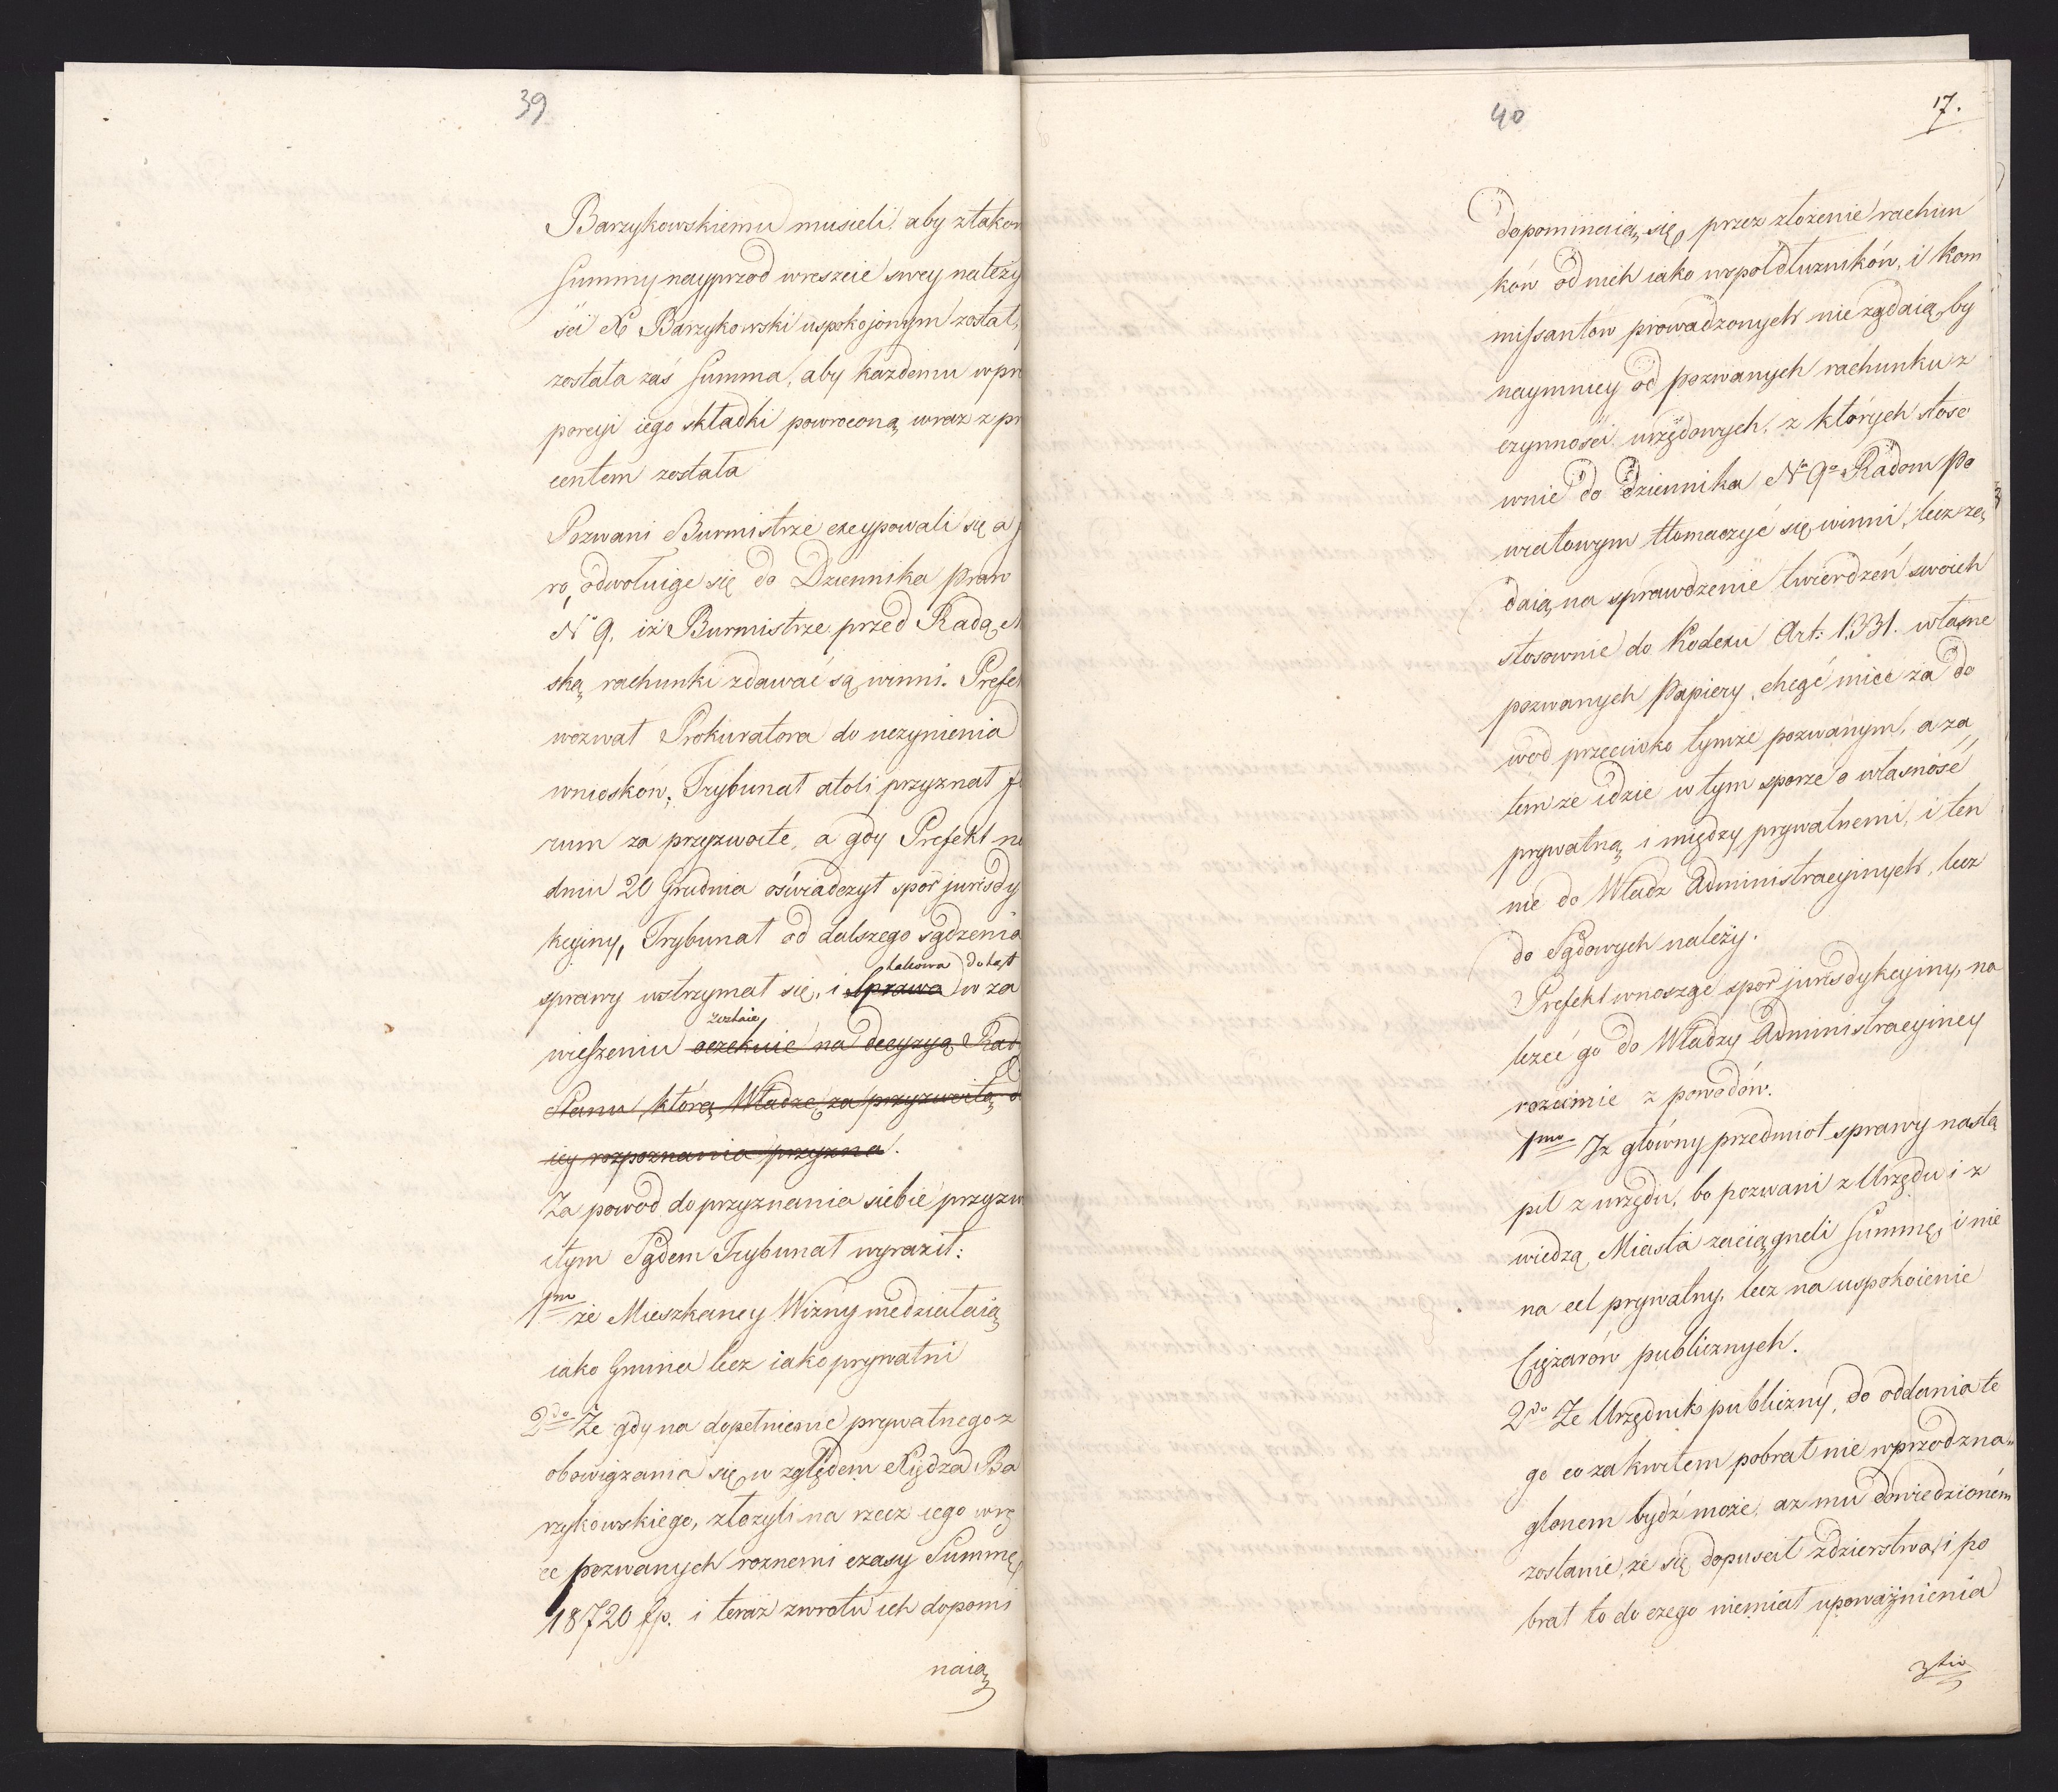 39
Barzykowskiemu musieli, aby z takow
Summy nayprzod wreszcie swey należy
ści X Barzykowski uspokojonym został,
została zaś Summa, aby każdemu w pr
porcyi iego składki powroconą wraz z pr
centem została
Pozwani Burmistrze excypowali się a f
ro, odwołuiąc się do Dziennika Praw
N 9, iż Burmistrze przed Radą M
ską rachunki zdawać są winni. Prefek
wezwał Prokuratora do uczynienia
wniosków, Trybunał atoli przyznał fo
rum za przyzwoite, a gdy Prefekt na
dniu 20 Grudnia oświadczył spór jurisdy
kcyiny, Trybunał od dalszego sądzenia
takowa dotąd
sprawy wstrzymał się, i sprawa w za
zostaie
wieszeniu oczekuie na decyzyą Rad
Stanu, którą Władzę za przyzwoitą d
iey rozpoznania przyzna.
Za powod do przyznania siebie przyzw
itym Sądem Trybunał wyraził:
1mo że Mieszkancy Wizny niedziałaią
iako Gmina lecz iako prywatni
2do Że gdy na dopełnienie prywatnego z
obowiązania się w zględem Xiędza Ba
rzykowskiego, złożyli na rzecz iego w rę
ce pozwanych roznemi czasy Summę
18720 fp. i teraz zwrotu ich dopomi
naią
40
17.
dopominaią się, przez złożenie rachun
ków od nich iako wspołdłużników, i kom
missantów prowadzonych nie żądaią by
naymniey od pozwanych rachunku z
czynności urzędowych, z których stoso
wnie do Dziennika No 9o Radom Po
wiatowym tłomaczyć się winni, lecz żą
daią na sprawdzenie twierdzeń swoich
stosownie do Kodexu Art: 1331. własne
pozwanych Papiery, chcąc mieć za do
wod przeciwko tymże pozwanym, a za
tem że idzie w tym sporze o własność
prywatną i między prywatnemi, i ten
nie do Władz Administracyinych, lecz
do Sądowych należy.
Prefekt wnosząc spór jurisdykcyiny, na
leżeć go do Władzy Administracyiney
rozumie z powodów.
1mo Iż główny przedmiot sprawy nastą
pił z urzędu, bo pozwani z Urzędu i z
wiedzą Miasta zaciągneli Summę, i nie
na cel prywatny, lecz na uspokoienie
Ciężarów publicznych.
2do Że Urzędnik publiczny, do oddania te
go co za kwitem pobrał nie wprzod zna„
glonem bydź może, aż mu dowiedzioném
zostanie, że się dopuścił zdzierstwa, i po
brał to do czego niemiał upoważnienia
3tio